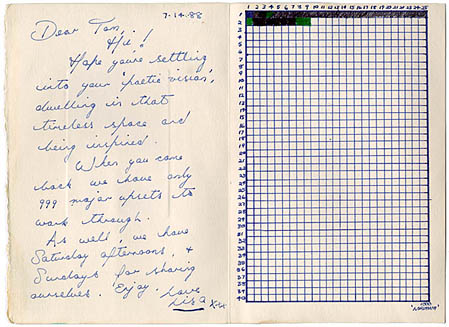 7-14-88
Dear Tom,
Hi!
Hope youre settling
into your 'poetic vision',
dwelling in that
timeless space and
being inspired.
When you come
back we have only
999 major upsets to
work through.
As well, we have
Saturday afternoons, &
Sundays for sharing
ourselves. Enjoy. Love
Lisa xxx
1 2 3 4 5 6 7 8 9 10 11 12 13 14 15 16 17 18 19 20 21 22 23 24 25
1
2
3
4
5
6
7
8
9
10
11
12
13
14
15
16
17
18
19
20
21
22
23
24
25
26
27
28
29
30
31
32
33
34
35
36
37
38
39
40
1000